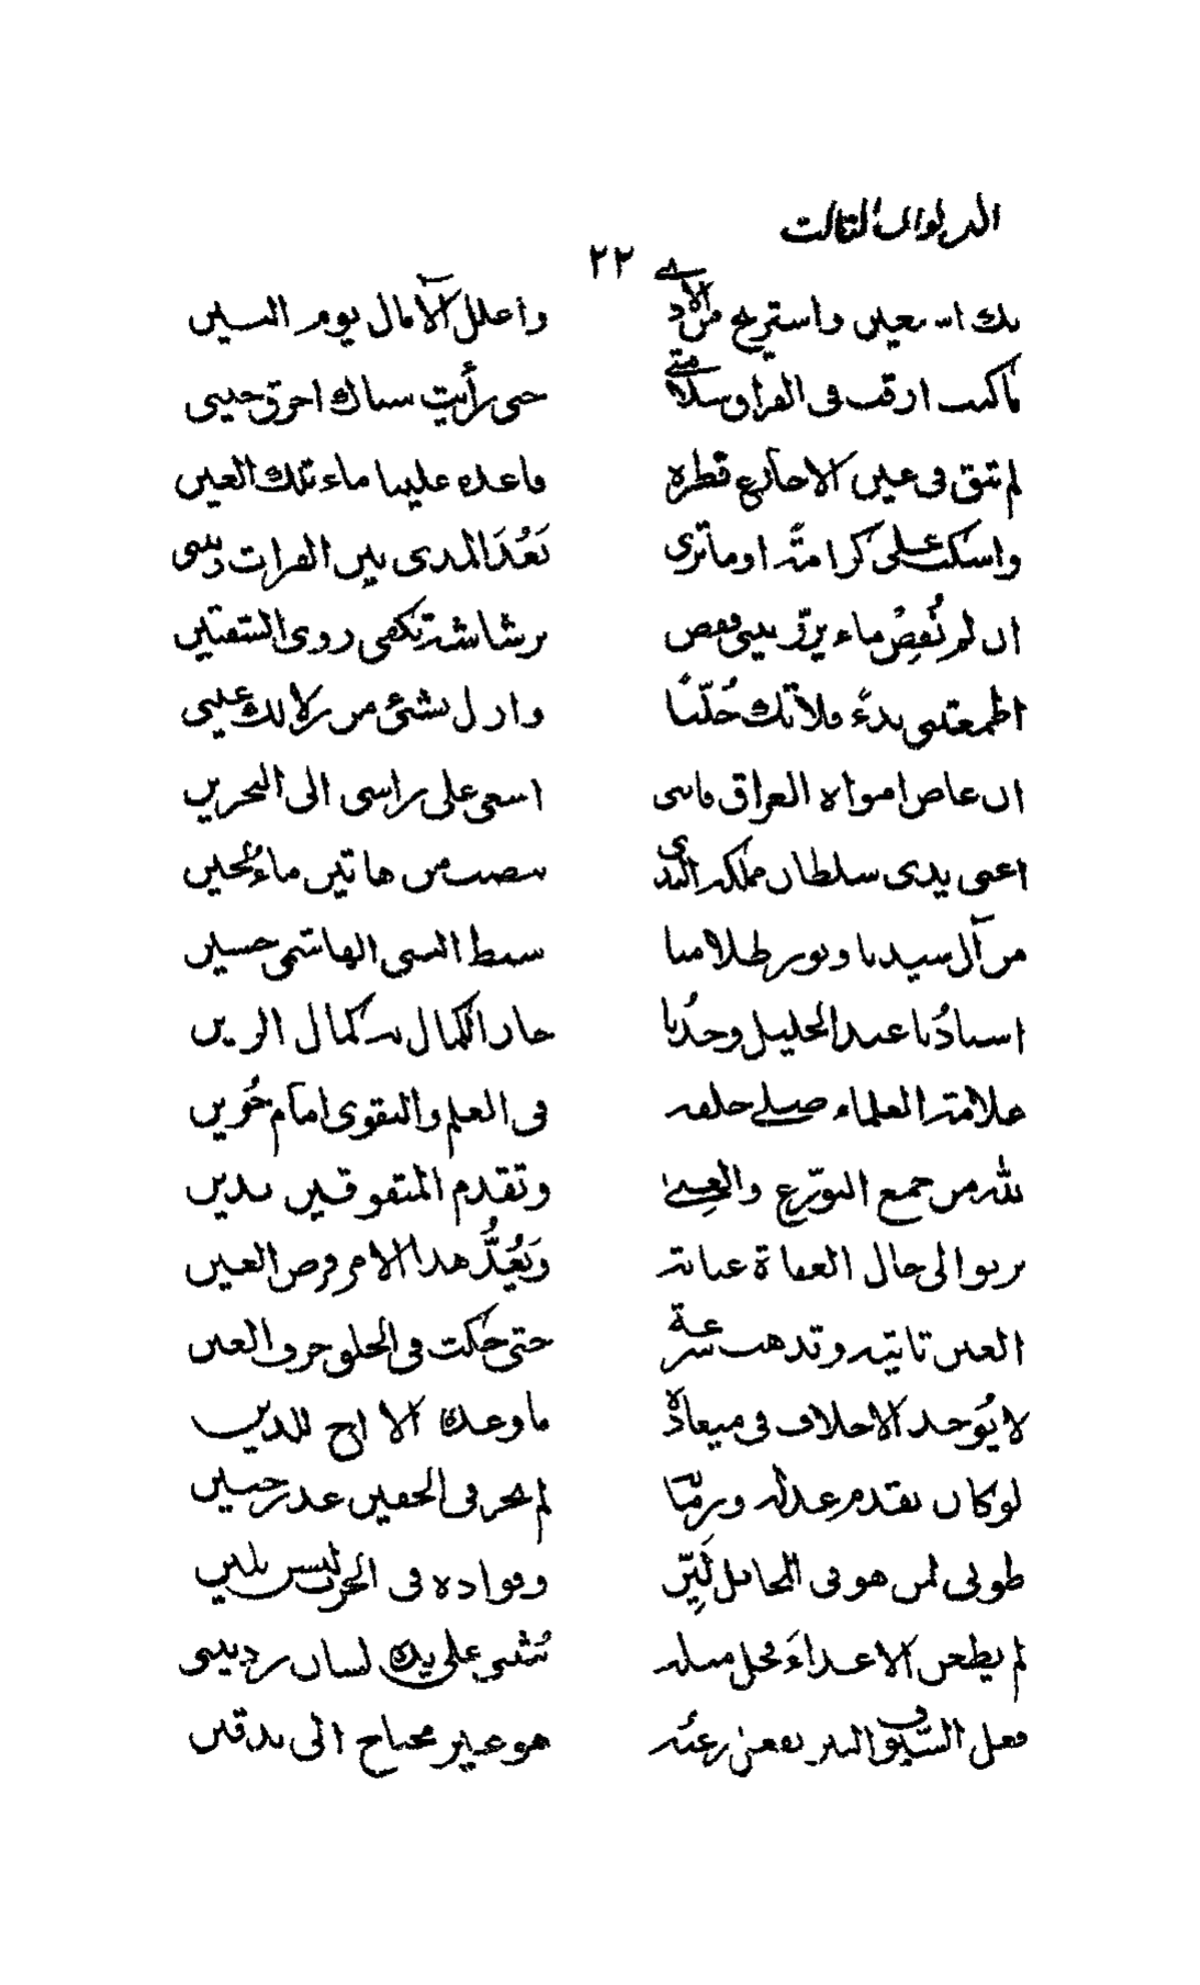 الديوان الثالث
٢٢
بك استعين واستريح من الأذى واعلل الآمال يوم البين
ما كنت ارقب فى الفراق سلامتى حتى رأيت سناك احرق حينى
لم تبق فى عينى الاحارع قطرة فاعده عليها ماء تلك العين
واسكب على كرامة اوما ترى بَعُدَ المدى بين الفرات وبينى
ان لم تُفِضْ ماء يرزّ بينى فغص برشاشة تكفى روى الشفتين
اطمعتنى بدءً فلا تك خُلّبًا وارل بشئ من زلالك عينى
ان غاص امواه العراق فاننى اسعى على راسى الى البحرين
اعنى يدى سلطان مملكة الندى بنصب من هاتين ماء لجين
من آل سيدنا ونور ظلامنا سبط النبى الهاشمى حسين
استاذُنا عبد الجليل وجدُنا حاز الكمال به كمال الزين
علامة العلماء صلى خلفه فى العلم والتقوى امام حُوين
لله من جمع التورّع والغنى وتقدم المتفوقين بدين
يرنو الى حال العفاة عناية وَيَعُدُّ هذا الامر فرض العين
العين تاتيه وتذهب سرعة حتى حكت فى الحلق حرف العين
لا يُوجد الاخلاف فى ميعاده ما وعده الا اخ للدين
لو كان تقدم عدله وزماننا لم يجر فى الحقين عدر حسين
طوبى لمن هو فى المحافل لَيِّن وفؤاده فى الحرب ليس بلين
لم يطعن الاعداءَ فحل مثله تُثنى على يده لسان ردينى
فعل السيوف البتر بفعل رعبه هو غير محتاج الى بدقين